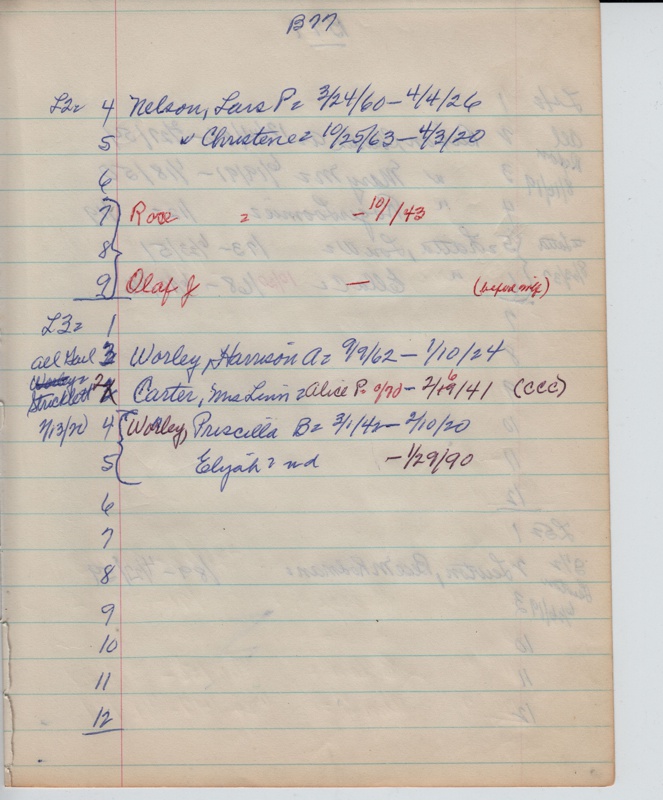 B77
L2= 4 Nelson, Lars P= 3/24/60 – 4/4/26
5 " Christene= 10/25/63 – 4/3/20
6
7 Rose = – 10/ /43
8
9 Olaf J – (before mfg)
L3= 1
3 Worley, Harrison A= 9/9/62 – 1/10/24
Strickland 2 Carter, Mrs Linn= Alice P= 9/70 – 2/19/41 (CCC)
7/13/20 4 Worley, Priscilla B= 3/1/42 – 2/10/20
5 Elijah= nd – 1/29/90
6
7
8
9
10
11
12